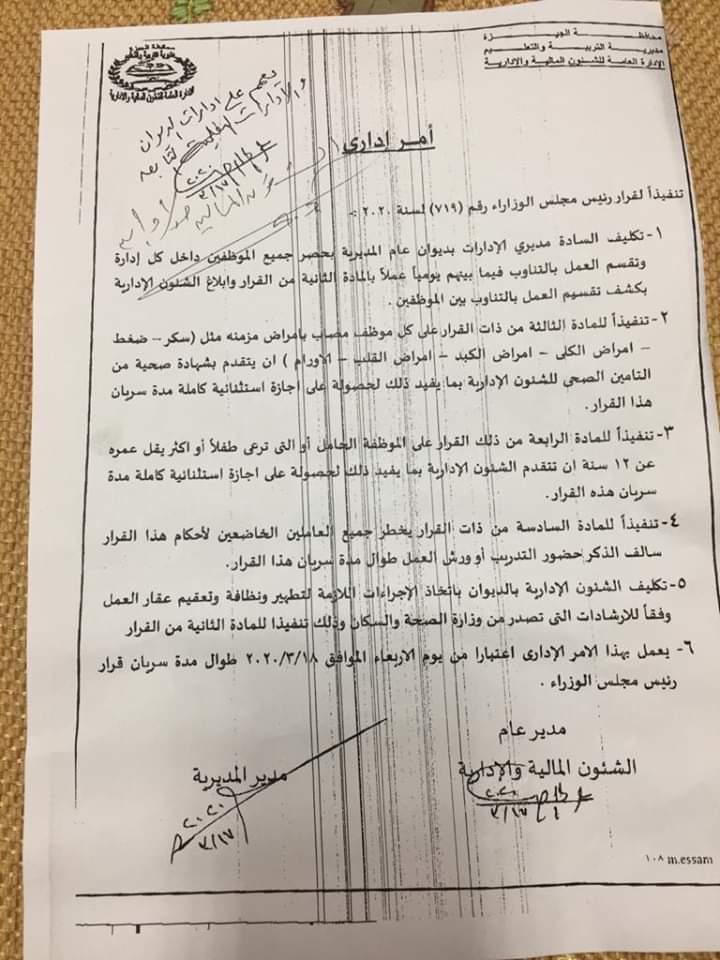 محافظة الجيزة
مديرية التربية والتعليم
الإدارة العامة للشئون المالية والإدارية
محافظة الجيزة
مديرية التربية والتعليم
الإدارة العامة للشئون المالية والإدارية
يعمم على إدارات الديوان
والإدارات التعليمية التابعة
٢٠٢٠
٣/١٧
أمر إداري
تنفيذاً لقرار رئيس مجلس الوزاراء رقم (٧١٩) لسنة ٢٠٢٠ :-
١- تكليف السادة مديري الإدارات بديوان عام المديرية بحصر جميع الموظفين داخل كل إدارة
وتقسم العمل بالتناوب فيما بينهم يومياً عملاً بالمادة الثانية من القرار وابلاغ الشئون الإدارية
بكشف تقسيم العمل بالتناوب بين الموظفين .
٢- تنفيذاً للمادة الثالثة من ذات القرار على كل موظف مصاب بامراض مزمنه مثل (سكر – ضغط
– امراض الكلى – امراض الكبد – امراض القلب – الاورام ) ان يتقدم بشهادة صحية من
التامين الصحى للشئون الإدارية بما يفيد ذلك لحصولة على اجازة استثنائية كاملة مدة سريان
هذا القرار .
٣- تنفيذاً للمادة الرابعة من ذلك القرار على الموظفة الحامل أو التى ترعى طفلاً أو اكثر يقل عمره
عن ١٢ سنة ان تتقدم الشئون الإدارية بما يفيد ذلك لحصولة على اجازة استثنائية كاملة مدة
سريان هذه القرار.
٤- تنفيذاً للمادة السادسة من ذات القرار يخطر جميع العاملين الخاضعين لأحكام هذا القرار
سالف الذكر حضور التدريب أو ورش العمل طوال مدة سريان هذا القرار.
٥- تكليف الشئون الإدارية بالديوان باتخاذ الإجراءات اللازمة لتطهير ونظافة وتعقيم عقار العمل
وفقاً للارشادات التى تصدر من وزارة الصحة والسكان وذلك تنفيذا للمادة الثانية من القرار
٦- يعمل بهذا الامر الإدارى اعتبارا من يوم الاربعاء الموافق ٢٠٢٠/٣/١٨ طوال مدة سريان قرار
رئيس مجلس الوزراء .
مدير عام
الشئون المالية والإدارية
٢٠٢٠
٣/١٧
مدير المديرية
٢٠٢٠
٣/١٧
١٠٨ m.essam